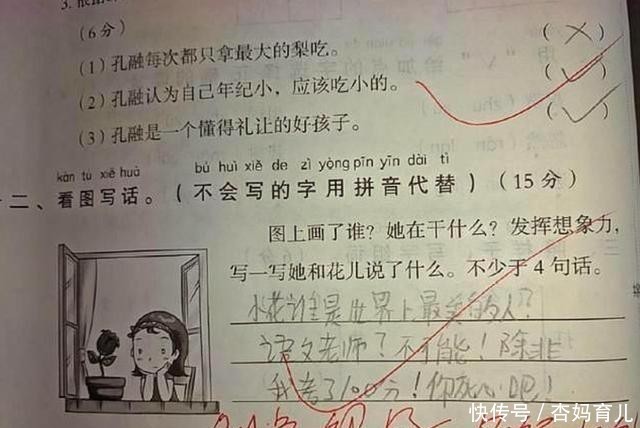 (6分)
(1)孔融每次都只拿最大的梨吃。 (×)
(2)孔融认为自己年纪小，应该吃小的。 (✓)
(3)孔融是一个懂得礼让的好孩子。 (✓)
kàn tú xiě huà bú huì xiě de zì yòng pīn yīn dài tì
二、看图写话。(不会写的字用拼音代替)(15分)
图上画了谁？她在干什么？发挥想象力，
写一写她和花儿说了什么。不少于4句话。
小花谁是世界上最美的人？
语文老师？不可能！除非
我考了100分！你死心吧！
快传号／杏妈育儿